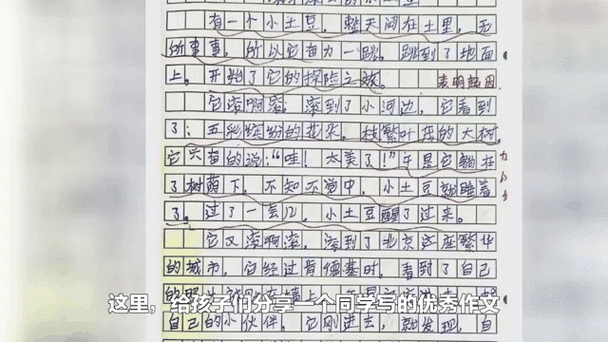 有一个小土豆，整天闷在土里，无
的事事，所以它奋力一跳，跳到了地面
上，开始了它的探险之旅。 表明起因
它滚啊滚，滚到了小河边，它看到
了：五彩缤纷的花朵，枝繁叶茂的大树，
它兴奋的说：“哇！太美了！”于是它躺在
了树荫下，不知不觉中，小土豆就睡着
了。过了一会儿，小土豆醒了过来。
它又滚啊滚，滚到了北京这座繁华
的城市，它经过肯德基时，看到了自己
这里，给孩子们分享一个同学写的优秀作文
自己的小伙伴，它刚进去，就发现，自